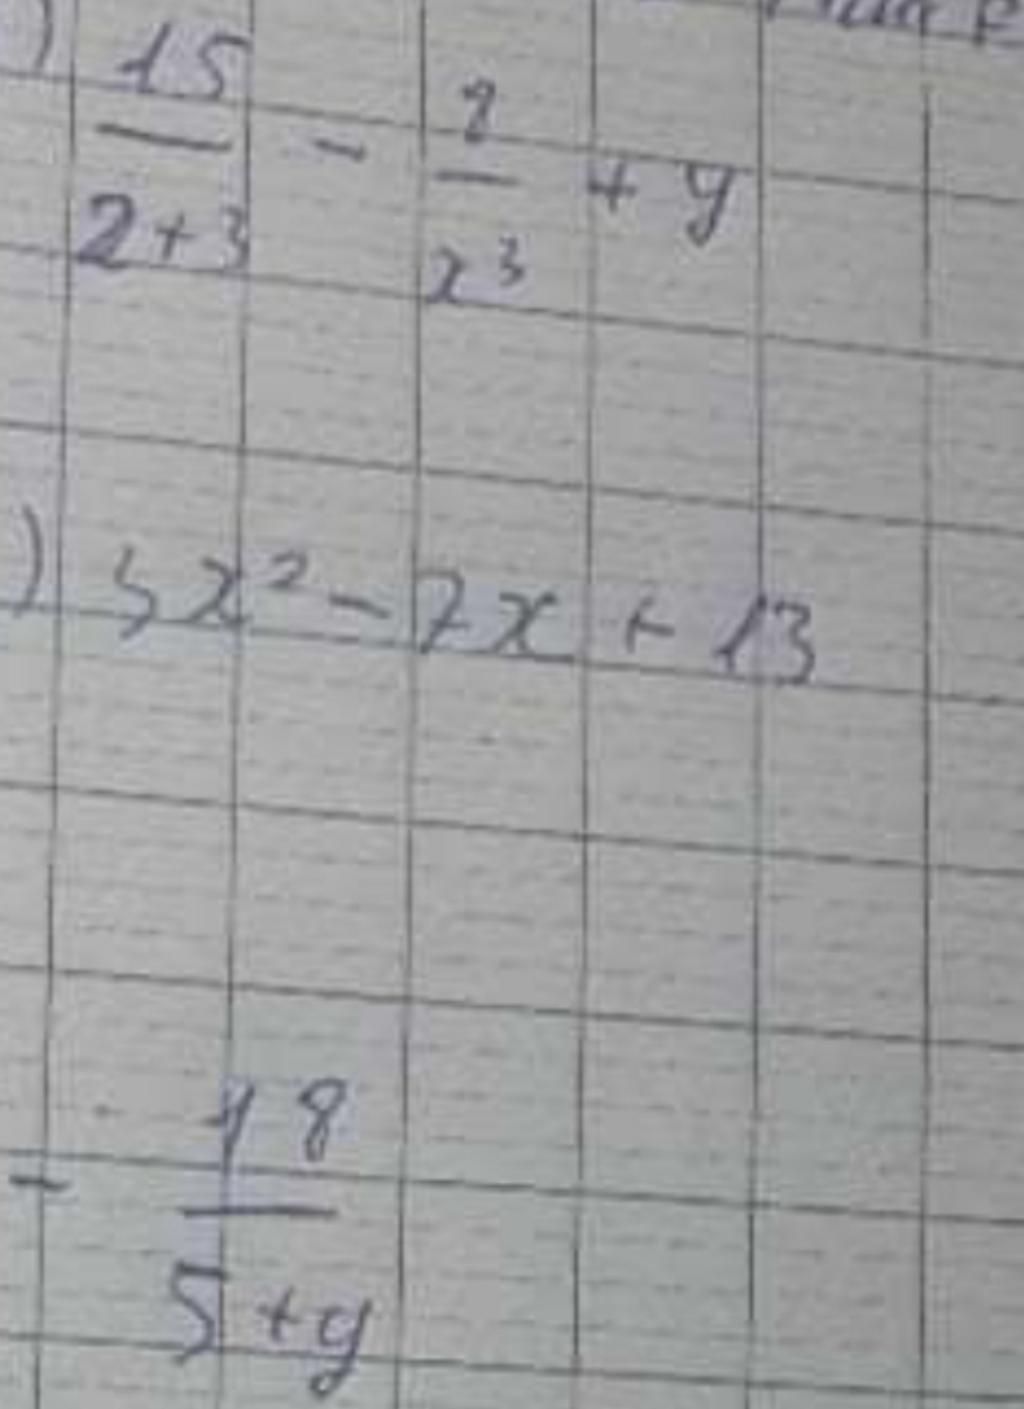 ) 15/(2+3) - 8/x³ + y
) 3x² - 7x + 13
- 18/(5+y)